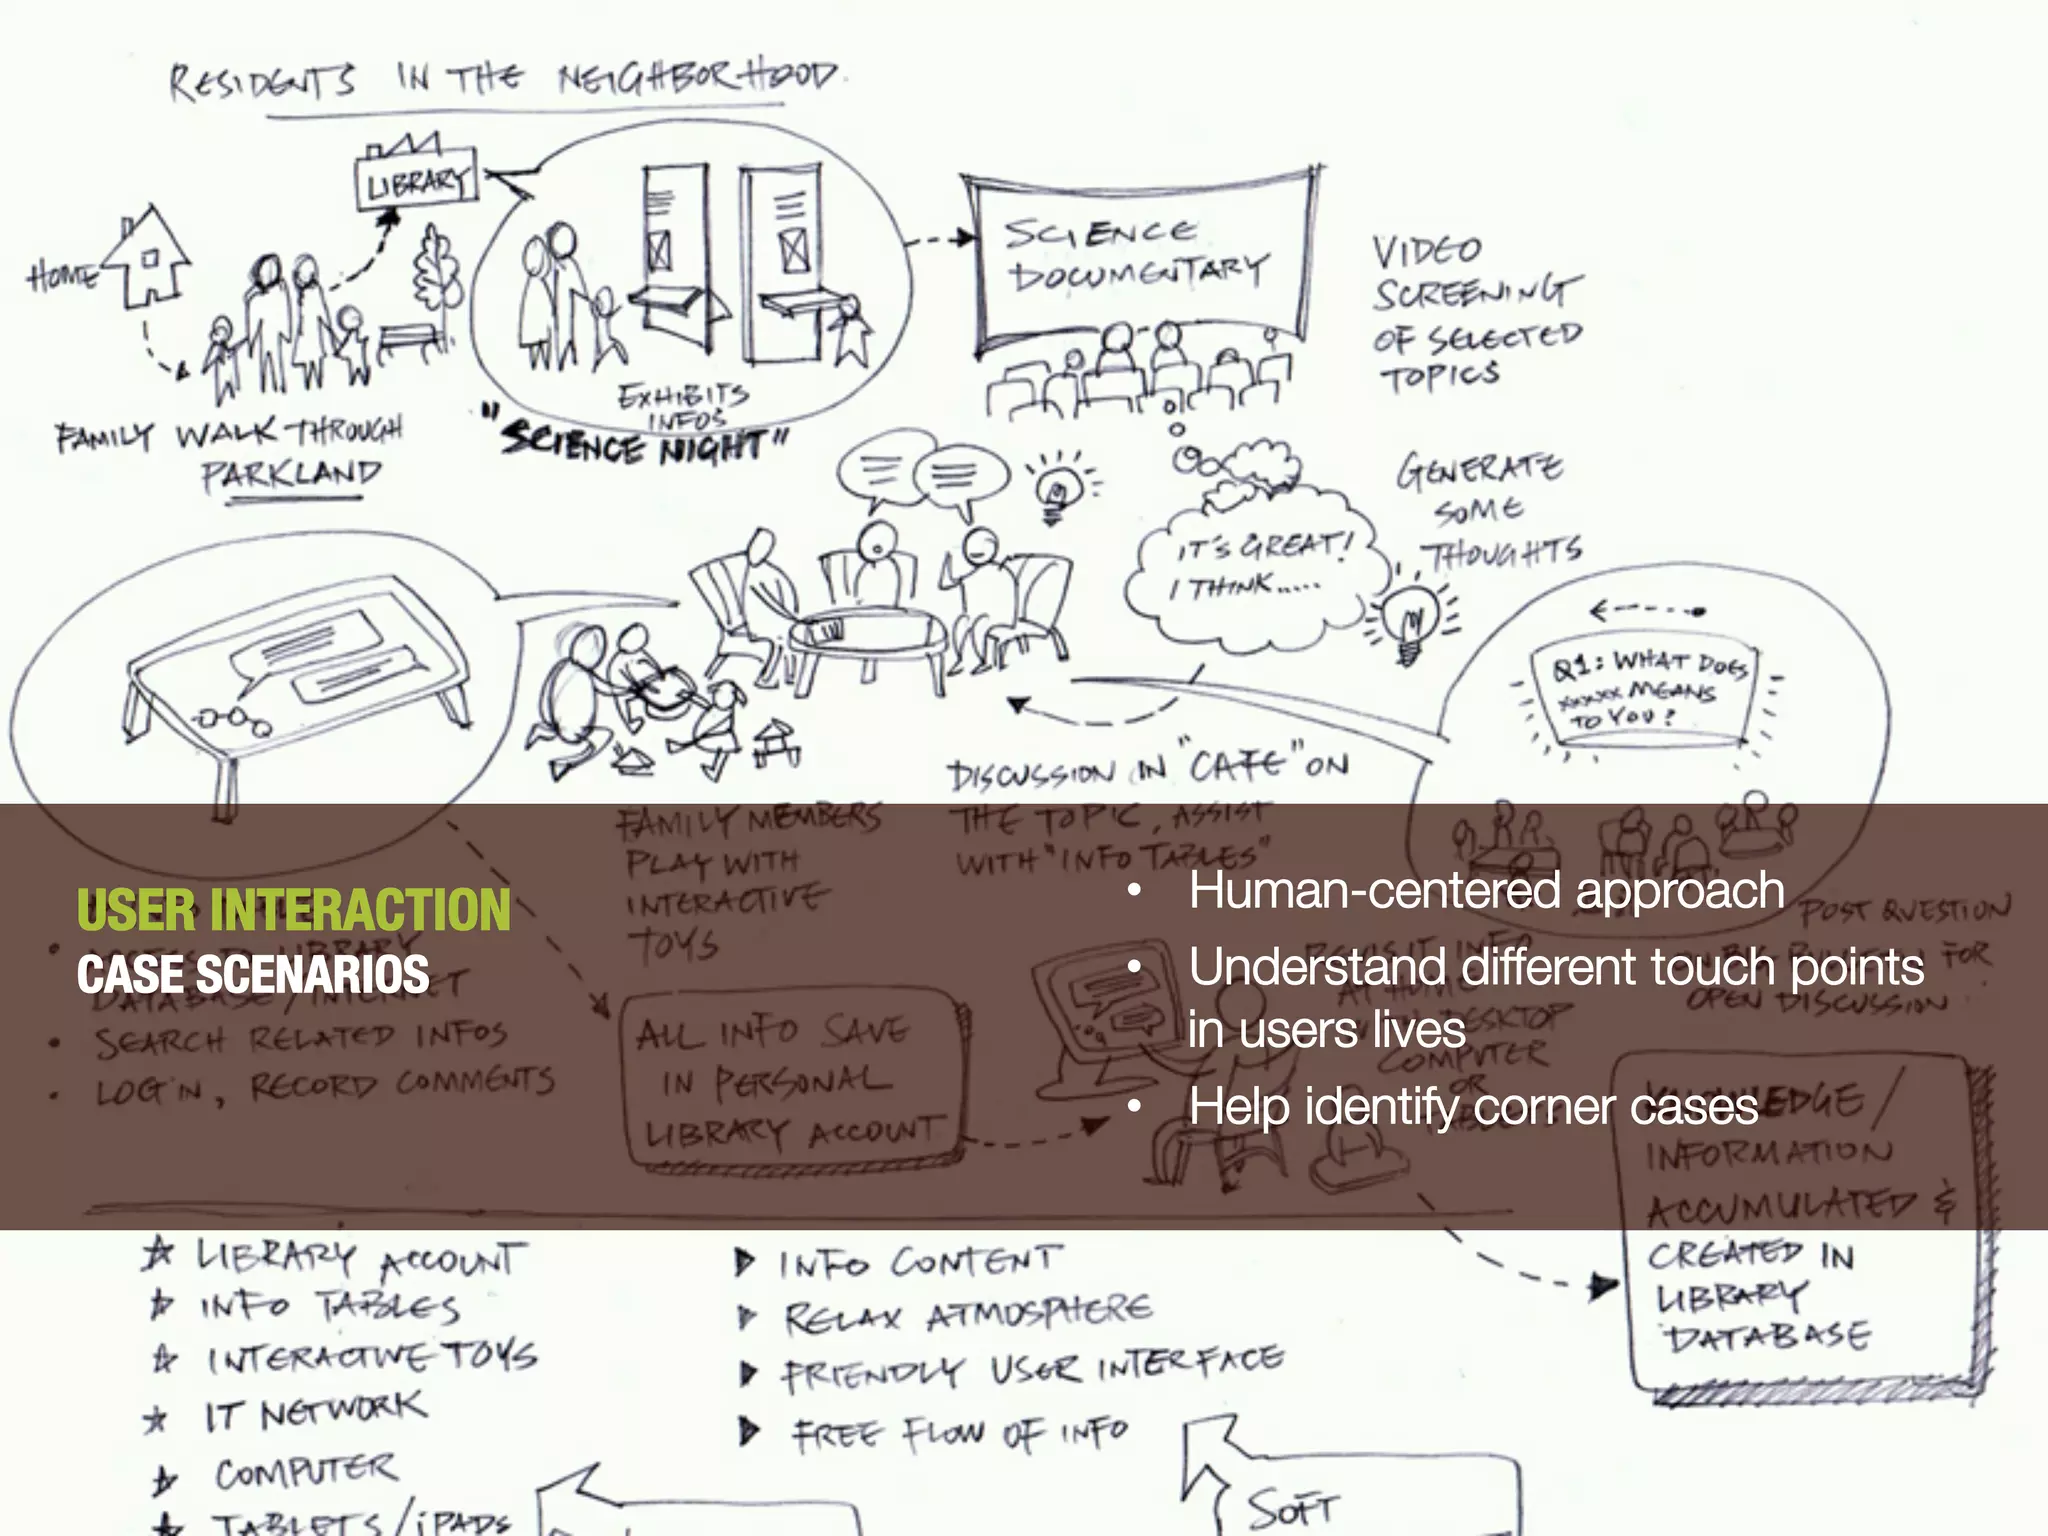 RESIDENTS IN THE NEIGHBORHOOD.
LIBRARY
HOME
FAMILY WALK THROUGH
PARKLAND
EXHIBITS
INFOS
"SCIENCE NIGHT"
SCIENCE
DOCUMENTARY
VIDEO
SCREENING
OF SELECTED
TOPICS
GENERATE
SOME
THOUGHTS
IT'S GREAT!
I THINK.....
Q1: WHAT DOES
xxxxxx MEANS
TO YOU?
DISCUSSION IN "CAFE" ON
THE TOPIC, ASSIST
WITH "INFO TABLES"
FAMILY MEMBERS
PLAY WITH
INTERACTIVE
TOYS
POST QUESTION
FOR
OPEN DISCUSSION
USER INTERACTION
CASE SCENARIOS
• Human-centered approach
• Understand different touch points
in users lives
• Help identify corner cases
DATABASE/INTERNET
• SEARCH RELATED INFOS
• LOGIN, RECORD COMMENTS
ALL INFO SAVE
IN PERSONAL
LIBRARY ACCOUNT
AT HOME
DESKTOP
COMPUTER
OR
KNOWLEDGE/
INFORMATION
ACCUMULATED &
CREATED IN
LIBRARY
DATABASE
LIBRARY ACCOUNT
INFO TABLES
INTERACTIVE TOYS
IT NETWORK
COMPUTER
TABLETS/iPADS
INFO CONTENT
RELAX ATMOSPHERE
FRIENDLY USER INTERFACE
FREE FLOW OF INFO
SOFT